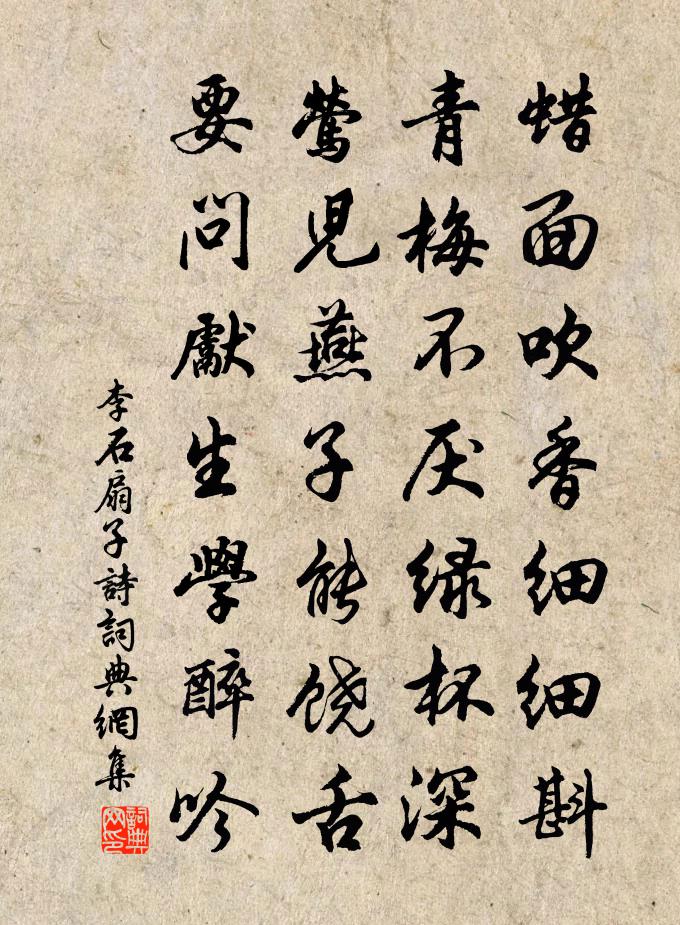 蜡面吹香细细斟
青梅不厌绿杯深
莺児燕子能饶舌
要问献生學醉吟
李石扇子詩詞典網集
詞典网印